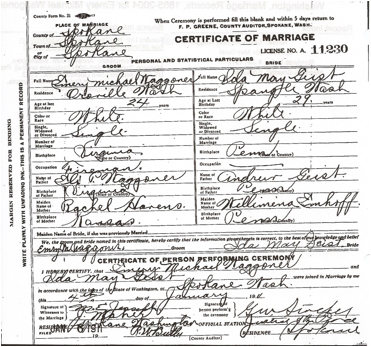 County Form No. 21
When Ceremony is performed fill this blank and within 5 days return to
F. P. GREENE, COUNTY AUDITOR, SPOKANE, WASH.
PLACE OF MARRIAGE
County of Spokane
Town of Spokane
City of Spokane
CERTIFICATE OF MARRIAGE
LICENSE NO. A 11230
PERSONAL AND STATISTICAL PARTICULARS
GROOM BRIDE
Full Name Emery Michael Waggoner Full Name Ida May Geist
Residence Oroville Wash Residence Spangle Wash
Age at last Birthday 24 years Age at Last Birthday 29 years
Color or Race White Color or Race White
Single, Widowed or Divorced Single Single, Widowed or Divorced Single
Number of Marriage Number of Marriage
Birthplace Virginia Birthplace Penna
Occupation Occupation
Name of Father Waggoner Name of Father Andrew Geist
Birthplace of Father Virginia Birthplace of Father Penna
Maiden Name of Mother Rachel Havens Maiden Name of Mother Willimina Emhoff
Birthplace of Mother Kansas Birthplace of Mother Penna
Maiden Name of Bride, if she was previously Married
We, the groom and bride named in this certificate, hereby certify that the information given therein is correct, to the best of our knowledge and belief
Emery Waggoner Groom Ida May Geist Bride
CERTIFICATE OF PERSON PERFORMING CEREMONY
I HEREBY CERTIFY, that Emery Michael Waggoner and
Ida May Geist were joined in Marriage by me
in accordance with the laws of the State of Washington, at Spokane Wash.
this 4th day of January 191
Signature of Witnesses to Marriage
Signature of person performing the ceremony
JAN 6 191
Spokane Washington
OFFICIAL STATION
RESIDENCE Spokane
(County Auditor)
MARGIN RESERVED FOR BINDING
WRITE PLAINLY WITH UNFADING INK—THIS IS A PERMANENT RECORD